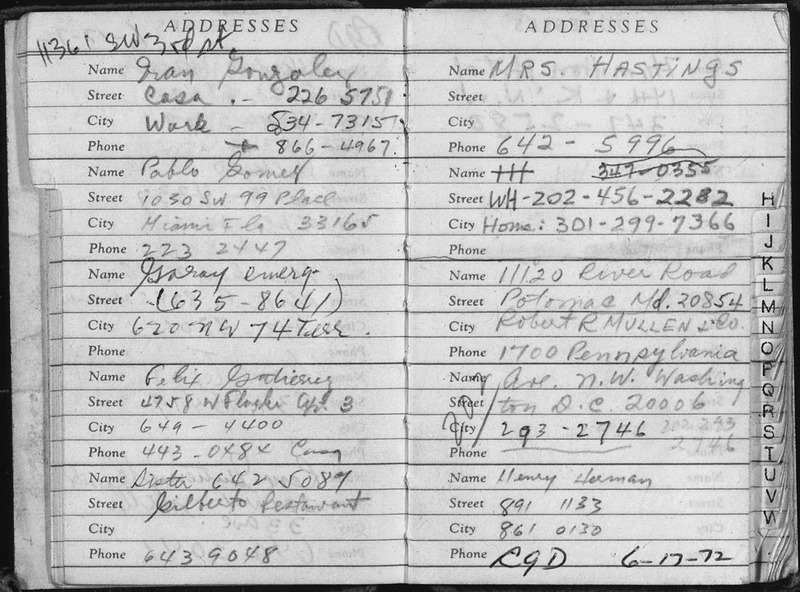 ADDRESSES
11361 SW 3rd St.
Name Ivan Gonzalez
Street Casa - 226 5751
City Work - 534-7315
Phone 866-4967
Name Pablo Gomez
Street 1030 SW 99 Place
City Miami Fla 33165
Phone 223 2447
Name Garay emerg-
Street (635-8641)
City 620 NW 74 Terr.
Phone
Name Felix Gutierrez
Street 4758 W Flagler Apt. 3
City 649-4400
Phone 443-0484 Casa
Name Sister 642 5089
Street Gilberto Restaurant
City
Phone 643 9048
ADDRESSES
Name MRS. HASTINGS
Street
City
Phone 642-5996
Name HH 347-0355
Street WH-202-456-2282
City Home: 301-299-7366
Phone
Name 11120 River Road
Street Potomac Md. 20854
City Robert R MULLEN & Co.
Phone 1700 Pennsylvania
Name Ave. N.W. Washing
Street ton D.C. 20006
City 293-2746 202-293
Phone 2746
Name Henry Herman
Street 891 1133
City 861 0130
Phone 6-17-72
H
I
J
K
L
M
N
O
P
Q
R
S
T
U
V
W